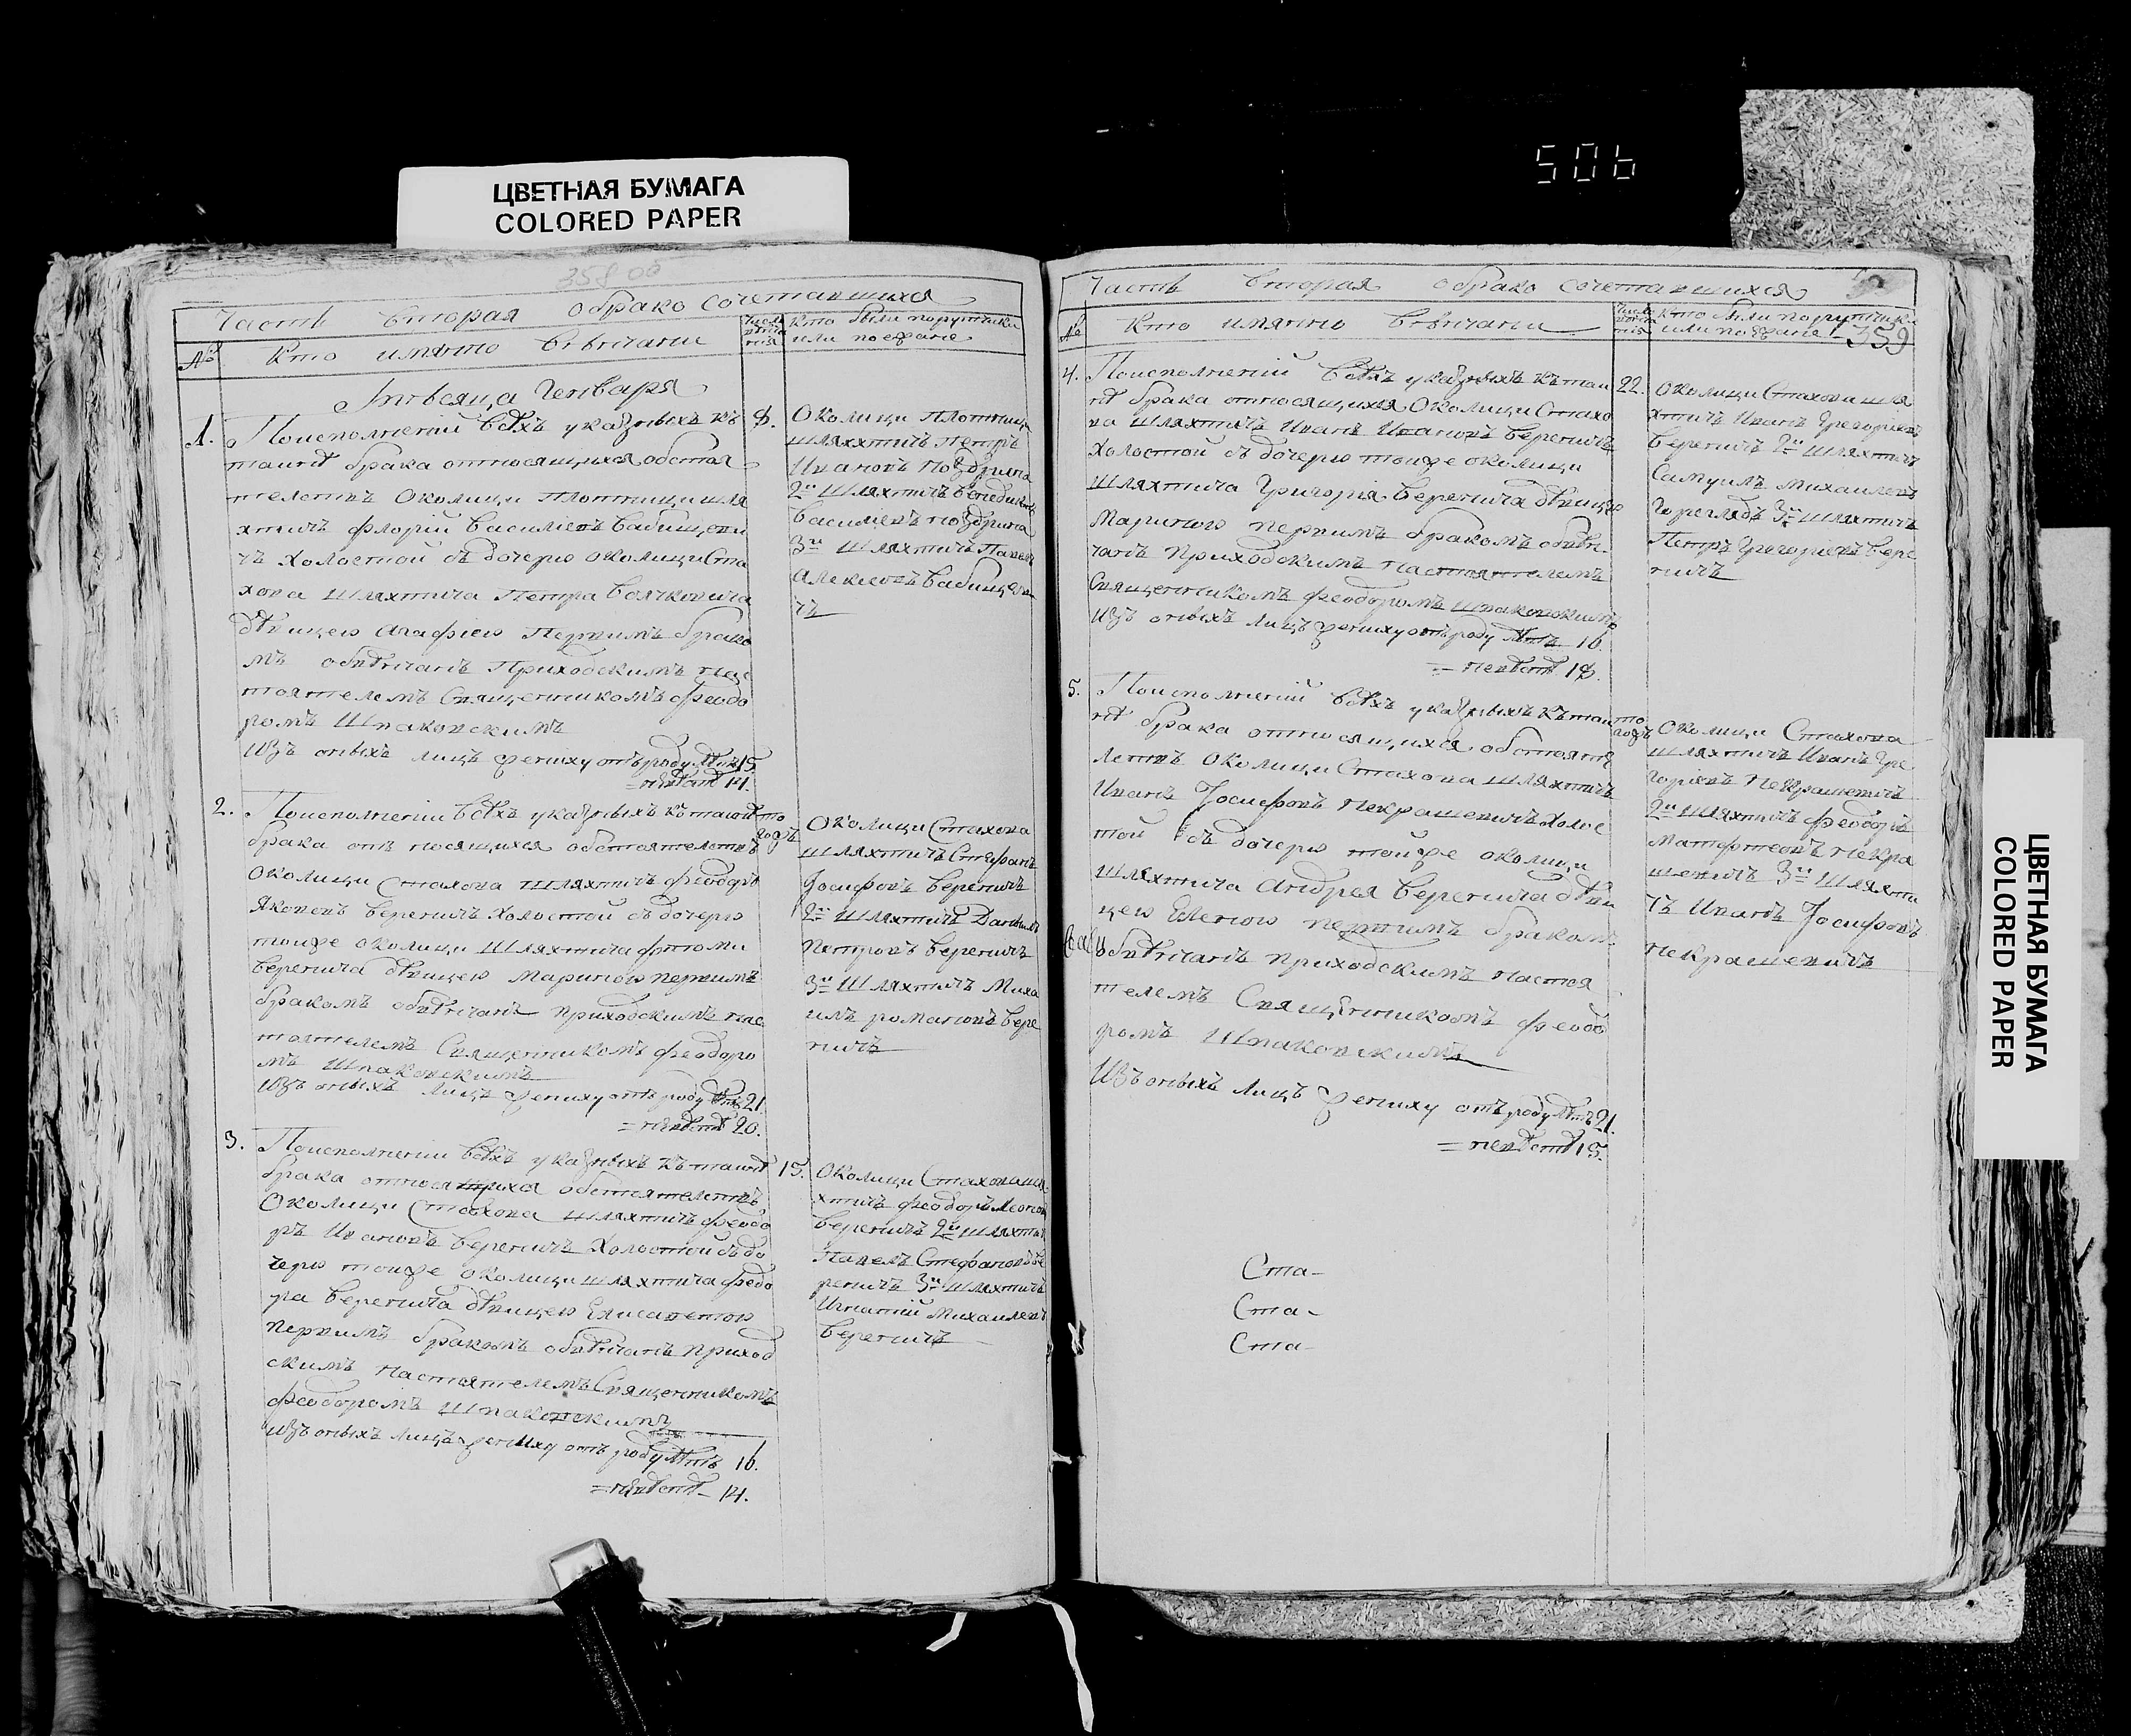 ЦВЕТНАЯ БУМАГА
COLORED PAPER
506
358 об
Часть вторая обрако сочетавшихся
№
Кто имянно ввенчани
Кто были поручики
или поезжане
Мѣсяца Генваря
1.
По исполненій всѣхъ указныхъ къ
таинѣ брака относящихся обстоя
телствъ околици Плотници шля
хтичъ Флорій Василіевъ Бабищеви
чъ холостой съ дочерю околици Ста
хова шляхтича Петра Войчховича
дѣвицею Агафіею первимъ брако
мъ обвѣнчанъ приходскимъ нас
тоятелемъ священникомъ Феодо
ромъ Шпаковскимъ
Изъ оныхъ лицъ жениху отъ роду лѣтъ 15.
= невѣстѣ 14.
8.
Околици Плотници
шляхтичъ Петръ
Ивановъ Ноздрина
2й шляхтичъ Бенедиктъ
Василіевъ Ноздрина
3й шляхтичъ Павелъ
Алексіевъ Бабищеви
чъ
2.
По исполненіи всѣхъ указныхъ къ таинѣ
брака относящихся обстоятелствъ
околици Стахова шляхтичъ Феодоръ
Яковевъ Вереничъ холостой съ дочерю
тоижъ околици шляхтича Фтоми
Веренича дѣвицею Мариною первимъ
бракомъ обвѣнчанъ приходскимъ нас
тоятелемъ священникомъ Феодоро
мъ Шпаковскимъ
Изъ оныхъ лицъ жениху отъ роду лѣтъ 21.
= невѣстѣ 20.
то
гожъ
Околици Стахова
шляхтичъ Стефанъ
Іосифовъ Вереничъ
2й шляхтичъ Даніилъ
Петровъ Вереничъ
3й шляхтичъ Миха
илъ Романовъ Вере
ничъ
3.
По исполненіи всѣхъ указныхъ къ таинѣ
брака относящихся обстоятелствъ
околици Стахова шляхтичъ Феодо
ръ Ивановъ Вереничъ холостой съ до
черю тоиже околици шляхтича Федо
ра Веренича дѣвицею Елисаветою
первимъ бракомъ обвѣнчанъ приход
скимъ настоятелемъ священникомъ
Феодоромъ Шпаковскимъ
Изъ оныхъ лицъ жениху отъ роду лѣтъ 16.
= невѣстѣ - 14.
15.
Околици Стахова шля
хтичъ Феодоръ Леонов
Вереничъ 2й шляхтич
Павелъ Стефановъ Ве
реничъ 3й шляхтичъ
Игнатій Михаилевъ
Вереничъ
Часть вторая обрако сочетавшихся
№
Кто имянно ввенчани
Кто были поручики
или поезжане
359
4.
По исполненій всѣхъ указныхъ къ таи
нѣ брака относящихся околици Стахо
ва шляхтичъ Иванъ Ивановъ Вереничъ
холостой съ дочерю тоиже околици
шляхтича Григорія Веренича дѣвице
Мариною первимъ бракомъ обвѣн
чанъ приходскимъ настоятелемъ
священникомъ Феодоромъ Шпаковскимъ
Изъ оныхъ лицъ жениху отъ роду лѣтъ 16.
= невѣстѣ 18.
22.
Околици Стахова шля
хтичъ Иванъ Грегоріевъ
Вереничъ 2й шляхтичъ
Самуилъ Михаилевъ
Гореглядъ 3й шляхтичъ
Петръ Грегоріевъ Вере
ничъ
5.
По исполненій всѣхъ указныхъ къ таи
нѣ брака относящихся обстояте
лствъ околици Стахова шляхтичъ
Иванъ Іосифовъ Некрашевичъ холос
той съ дочерю тойже околици
шляхтича Андрея Веренича дѣви
цею Еленою первимъ бракомъ
обвѣнчанъ приходскимъ настоя
телемъ священникомъ Феодо
ромъ Шпаковскимъ
Изъ оныхъ лицъ жениху отъ роду лѣтъ 21.
= невѣстѣ 15.
то
гожъ
Околици Стахова
шляхтичъ Иванъ Гре
горіевъ Некрашевичъ
2й шляхтичъ Феодоръ
Матфтеовъ Некра
шевичъ 3й шляхти
чъ Иванъ Іосифовъ
Некрашевичъ
Ста-
Ста-
Ста-
ЦВЕТНАЯ БУМАГА
COLORED PAPER